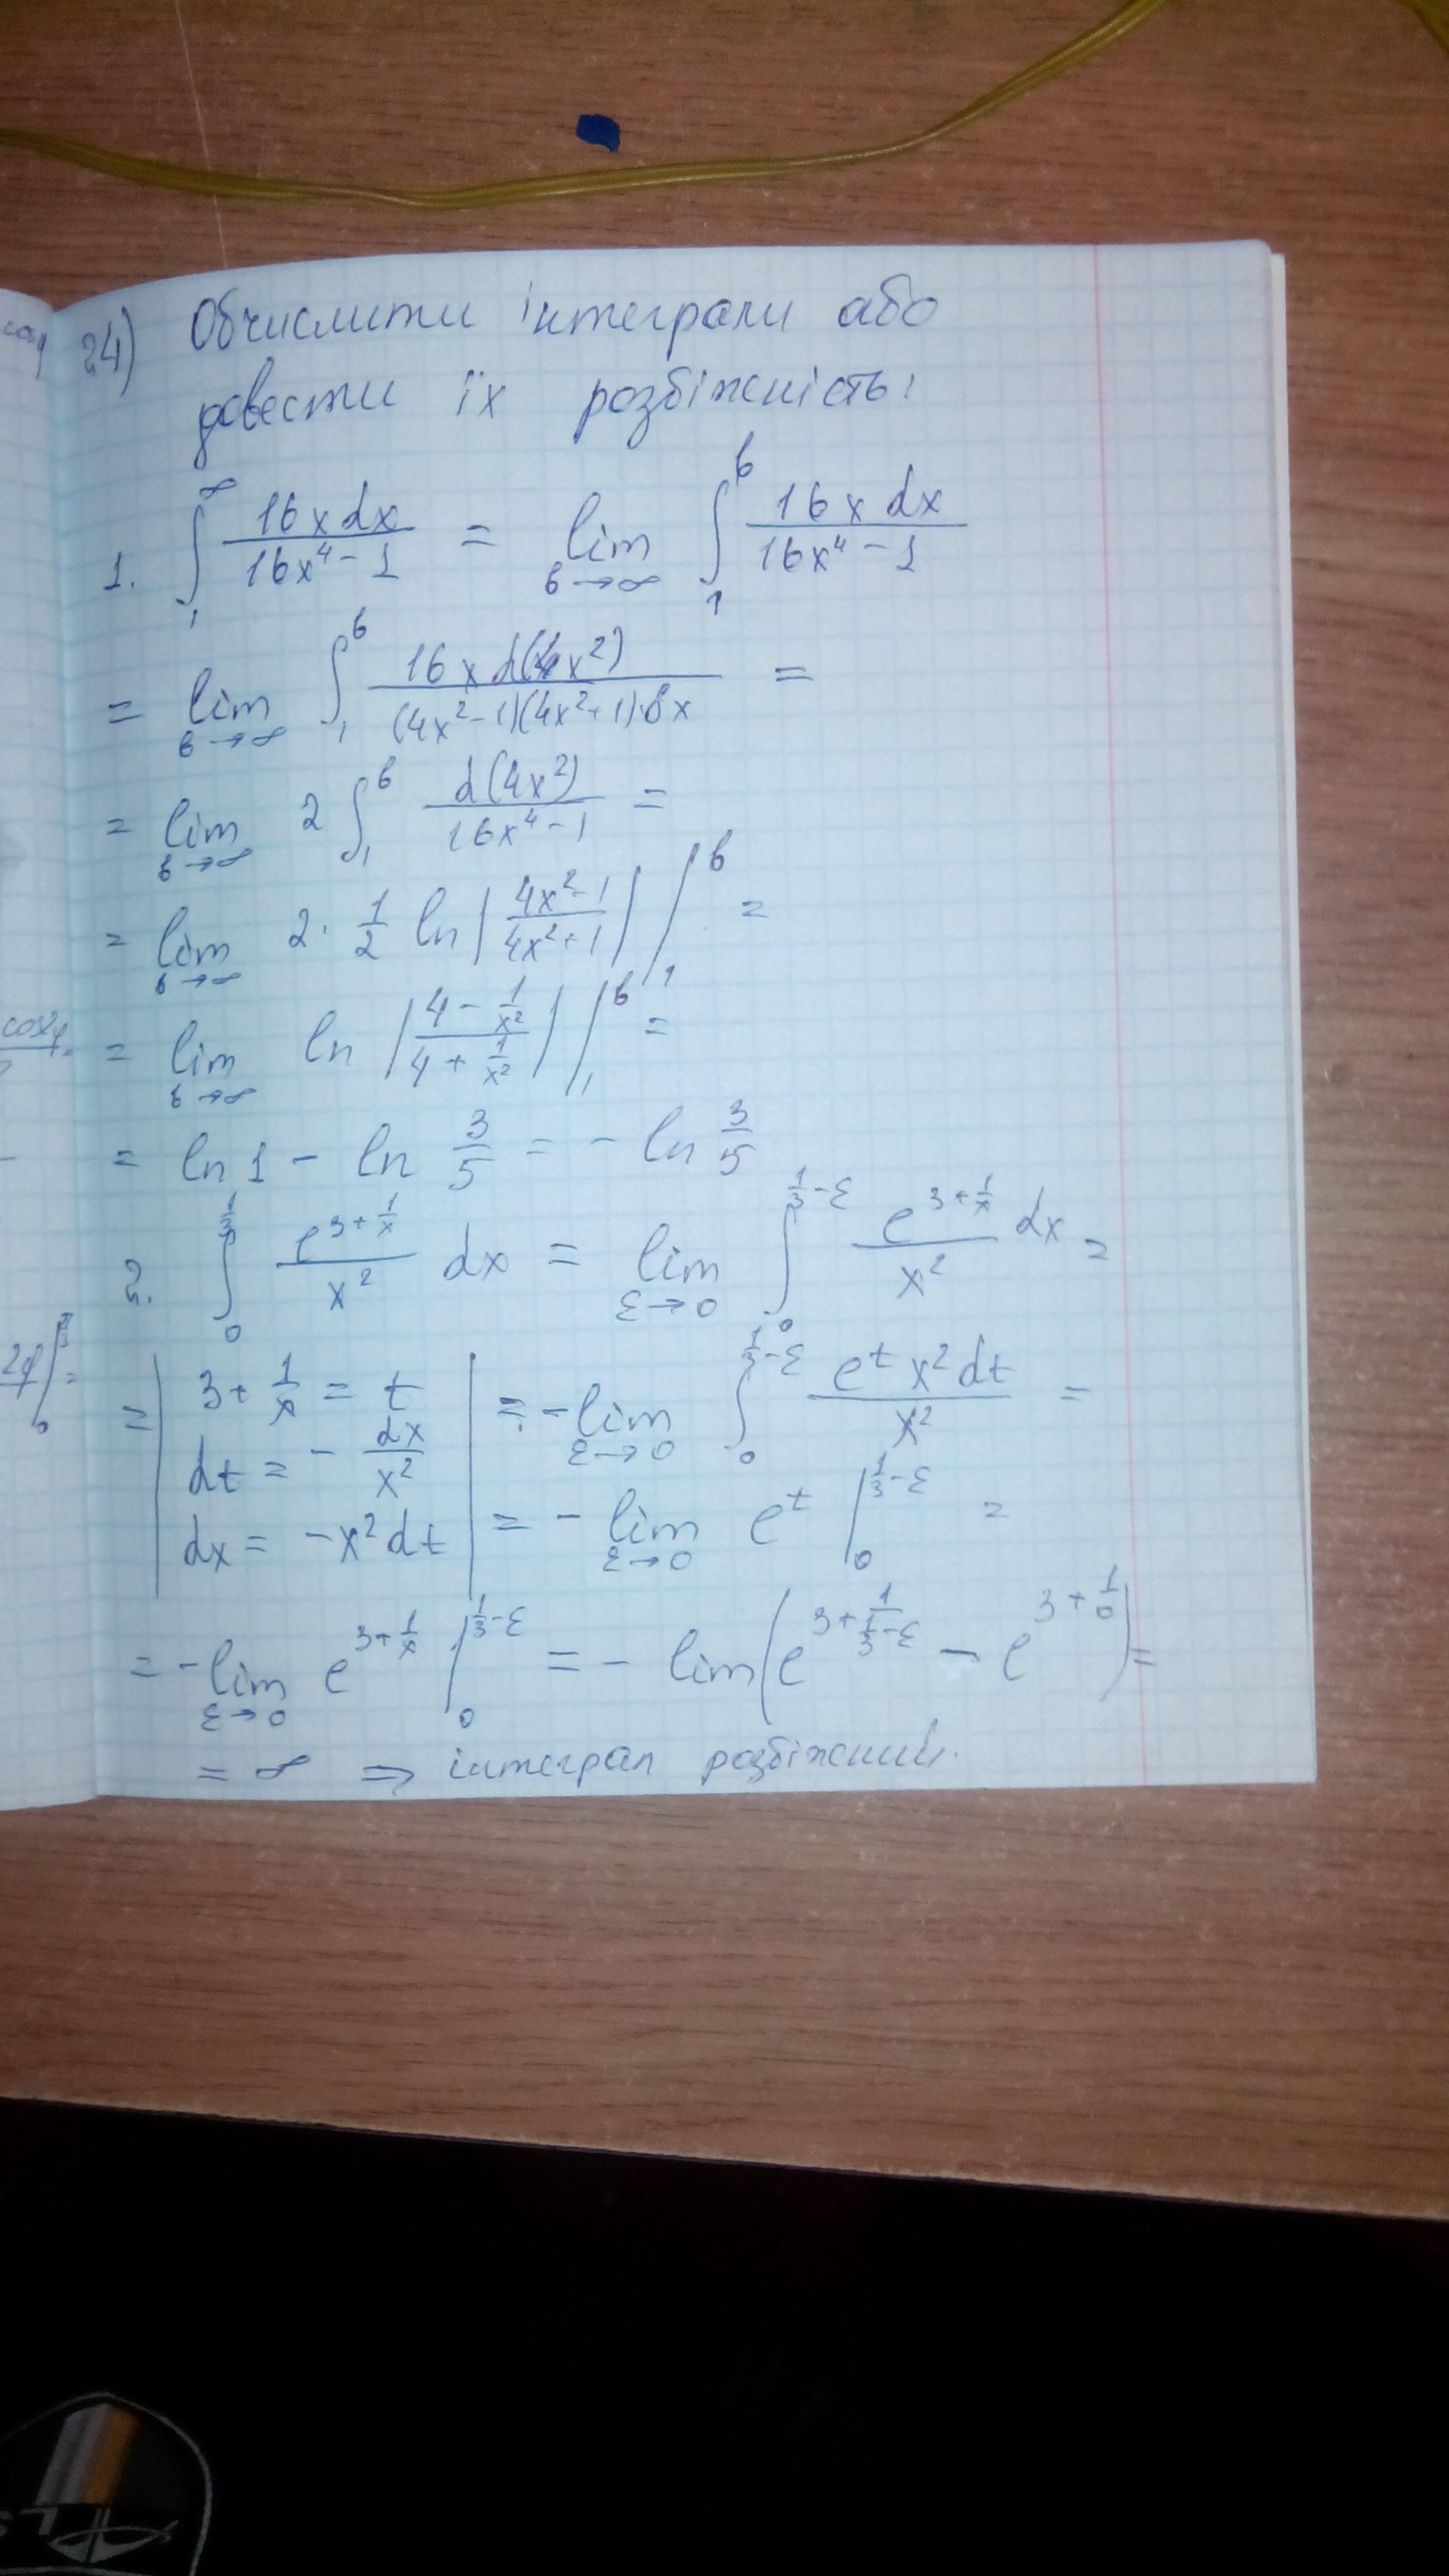 24) Обчислити інтеграли або
довести їх розбіжність:
1. ∫₁^∞ 16xdx/(16x⁴ - 1) = lim_{b→∞} ∫₁^b 16x dx/(16x⁴ - 1)
= lim_{b→∞} ∫₁^b 16x d(4x²)/((4x²-1)(4x²+1)·8x) =
= lim_{b→∞} 2 ∫₁^b d(4x²)/(16x⁴-1) =
= lim_{b→∞} 2 · 1/2 ln |(4x²-1)/(4x²+1)| |₁^b =
= lim_{b→∞} ln |(4 - 1/x²)/(4 + 1/x²)| |₁^b =
= ln 1 - ln 3/5 = - ln 3/5
2. ∫₀^{1/3} e^{3+1/x}/x² dx = lim_{ε→0} ∫₀^{1/3-ε} e^{3+1/x}/x² dx =
= | 3 + 1/x = t
dt = - dx/x²
dx = -x²dt | = -lim_{ε→0} ∫₀^{1/3-ε} e^t x²dt/x² =
= - lim_{ε→0} e^t |₀^{1/3-ε} =
= -lim_{ε→0} e^{3+1/x} |₀^{1/3-ε} = - lim(e^{3+1/(1/3-ε)} - e^{3+1/0}) =
= ∞ ⇒ інтеграл розбіжний.